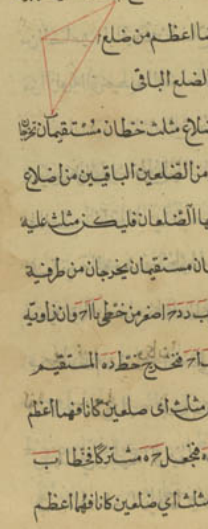 ما اعظم من ضلع
لضلع الباقى
ضلاع مثلث خطان مستقيمان يخرجا
من الضلعين الباقيين من اضلاع
الضلعان فليكن مثلث عليه
ان مستقيمان يخرجان من طرفية
ب د د ح اصغر من خطى ب ا ا ح وان زاوية
فنخرج خط د ه المستقيم
مثلث اى ضلعين كانا فهما اعظم
ه فنجعل ح ه مشتركا فخطا ب
مثلث اى ضلعين كانا فهما اعظم